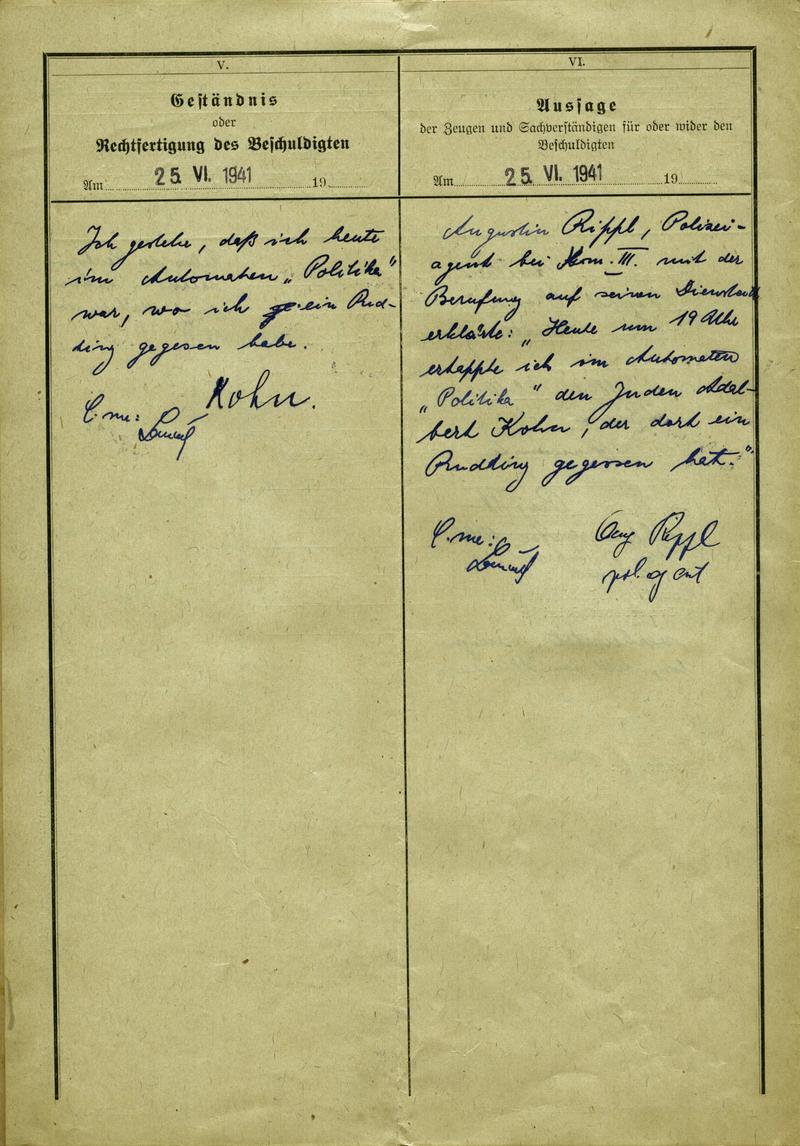 V.
Geständnis
oder
Rechtfertigung des Beschuldigten
Am 25. VI. 1941 19
Ich gestehe, daß ich heute
im Automaten „Politika"
war, wo ich ein Pud-
ding gegessen habe.
Kohn.
C. me:
VI.
Aussage
der Zeugen und Sachverständigen für oder wider den
Beschuldigten
Am 25. VI. 1941 19
Augustin Rippl, Polizei-
agent bei Kom. III. mit der
Berufung auf seinen Diensteid
erklärte: „Heute um 19 Uhr
ertappte ich im Automaten
„Politika" den Juden Adal-
bert Kohn, der dort ein
Pudding gegessen hat."
C. me:
Aug Rippl
pol. agent